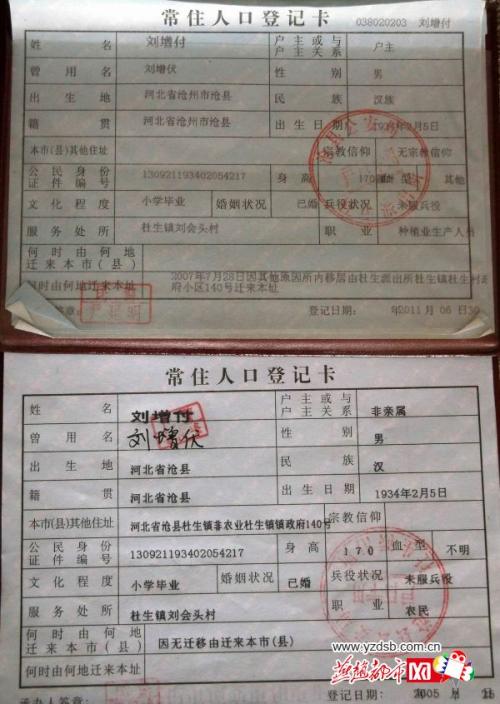 常住人口登记卡
038020203 刘增付
姓名 刘增付 户主或与户主关系 户主
曾用名 刘增伏 性别 男
出生地 河北省沧州市沧县 民族 汉族
籍贯 河北省沧州市沧县 出生日期 1934年2月5日
本市(县)其他住址 宗教信仰 无宗教信仰
公民身份证件编号 130921193402054217 身高 170 血型 其他
文化程度 小学毕业 婚姻状况 已婚 兵役状况 未服兵役
服务处所 杜生镇刘会头村 职业 种植业生产人员
何时由何地迁来本市(县)
何时由何地迁来本址 2007年7月28日因其他原因所内移居由杜生派出所杜生镇杜生村政府小区140号迁来本址
登记日期: 2011年06月30
常住人口登记卡
姓名 刘增付 户主或与户主关系 非亲属
曾用名 刘增伏 性别 男
出生地 河北省沧县 民族 汉
籍贯 河北省沧县 出生日期 1934年2月5日
本市(县)其他住址 河北省沧县杜生镇非农业杜生镇镇政府140号 宗教信仰
公民身份证件编号 130921193402054217 身高 170 血型 不明
文化程度 小学毕业 婚姻状况 已婚 兵役状况 未服兵役
服务处所 杜生镇刘会头村 职业 农民
何时由何地迁来本市(县) 因无迁移由迁来本市(县)
何时由何地迁来本址
www.yzdsb.com.cn
燕赵都市网
承办人签章: 登记日期: 2005年